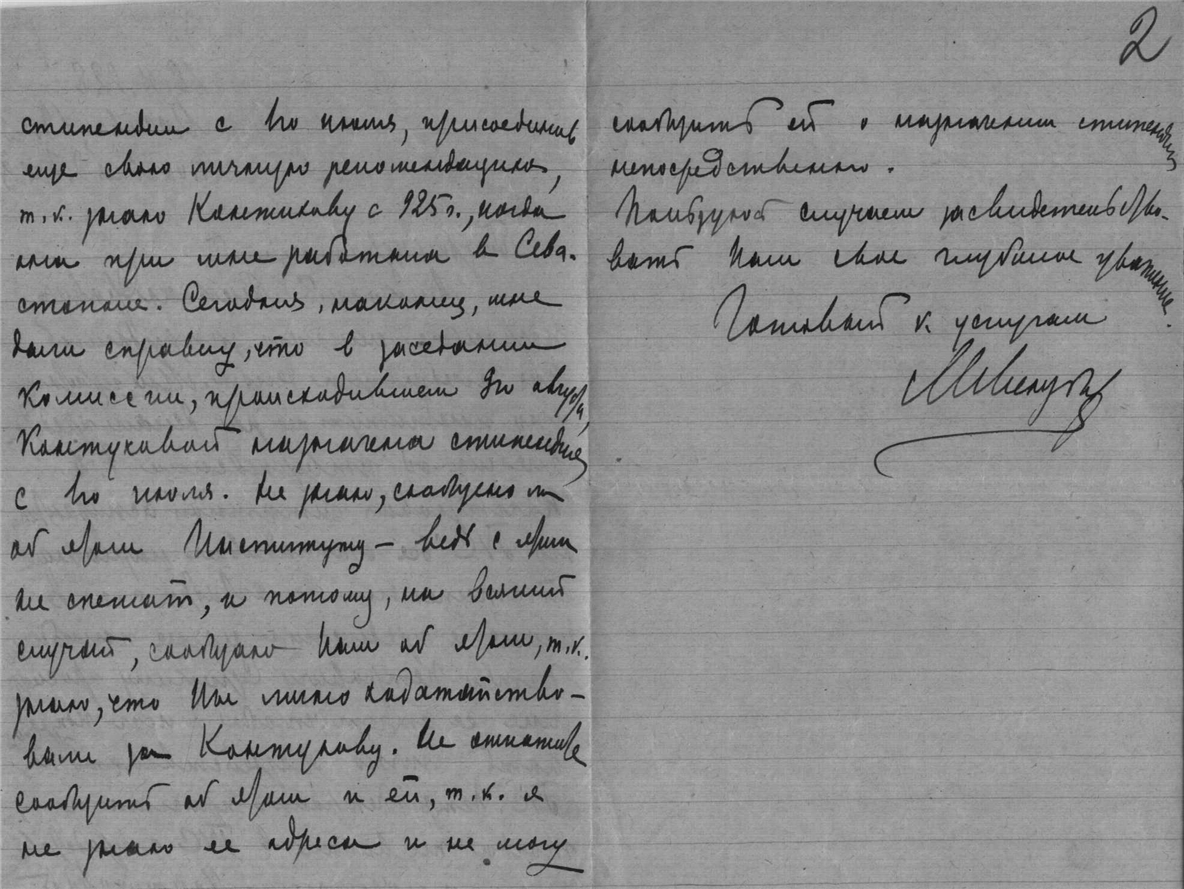 2
стипендии с 1го июля, присоединив
еще свою личную рекомендацию,
т.к. знаю с 925г., когда
она при мне работала в Сева-
стополе. Сегодня, наконец, мне
дали справку, что в заседании
Комиссии, происходившем 9го августа,
Контуковой назначена стипендия
с 1го июля. Не знаю, сообщено ли
об этом Институту — ведь с этим
не спешат, и потому, на всякий
случай, сообщаю Вам об этом, т.к.
знаю, что Вы лично ходатайство-
вали за Контукову. Не откажите
сообщить об этом и ей, т.к. я
не знаю ее адреса и не могу
сообщить ей о назначении стипендии
непосредственно.
Пользуюсь случаем засвидетельство-
вать Вам свое глубокое уважение.
Готовый к услугам